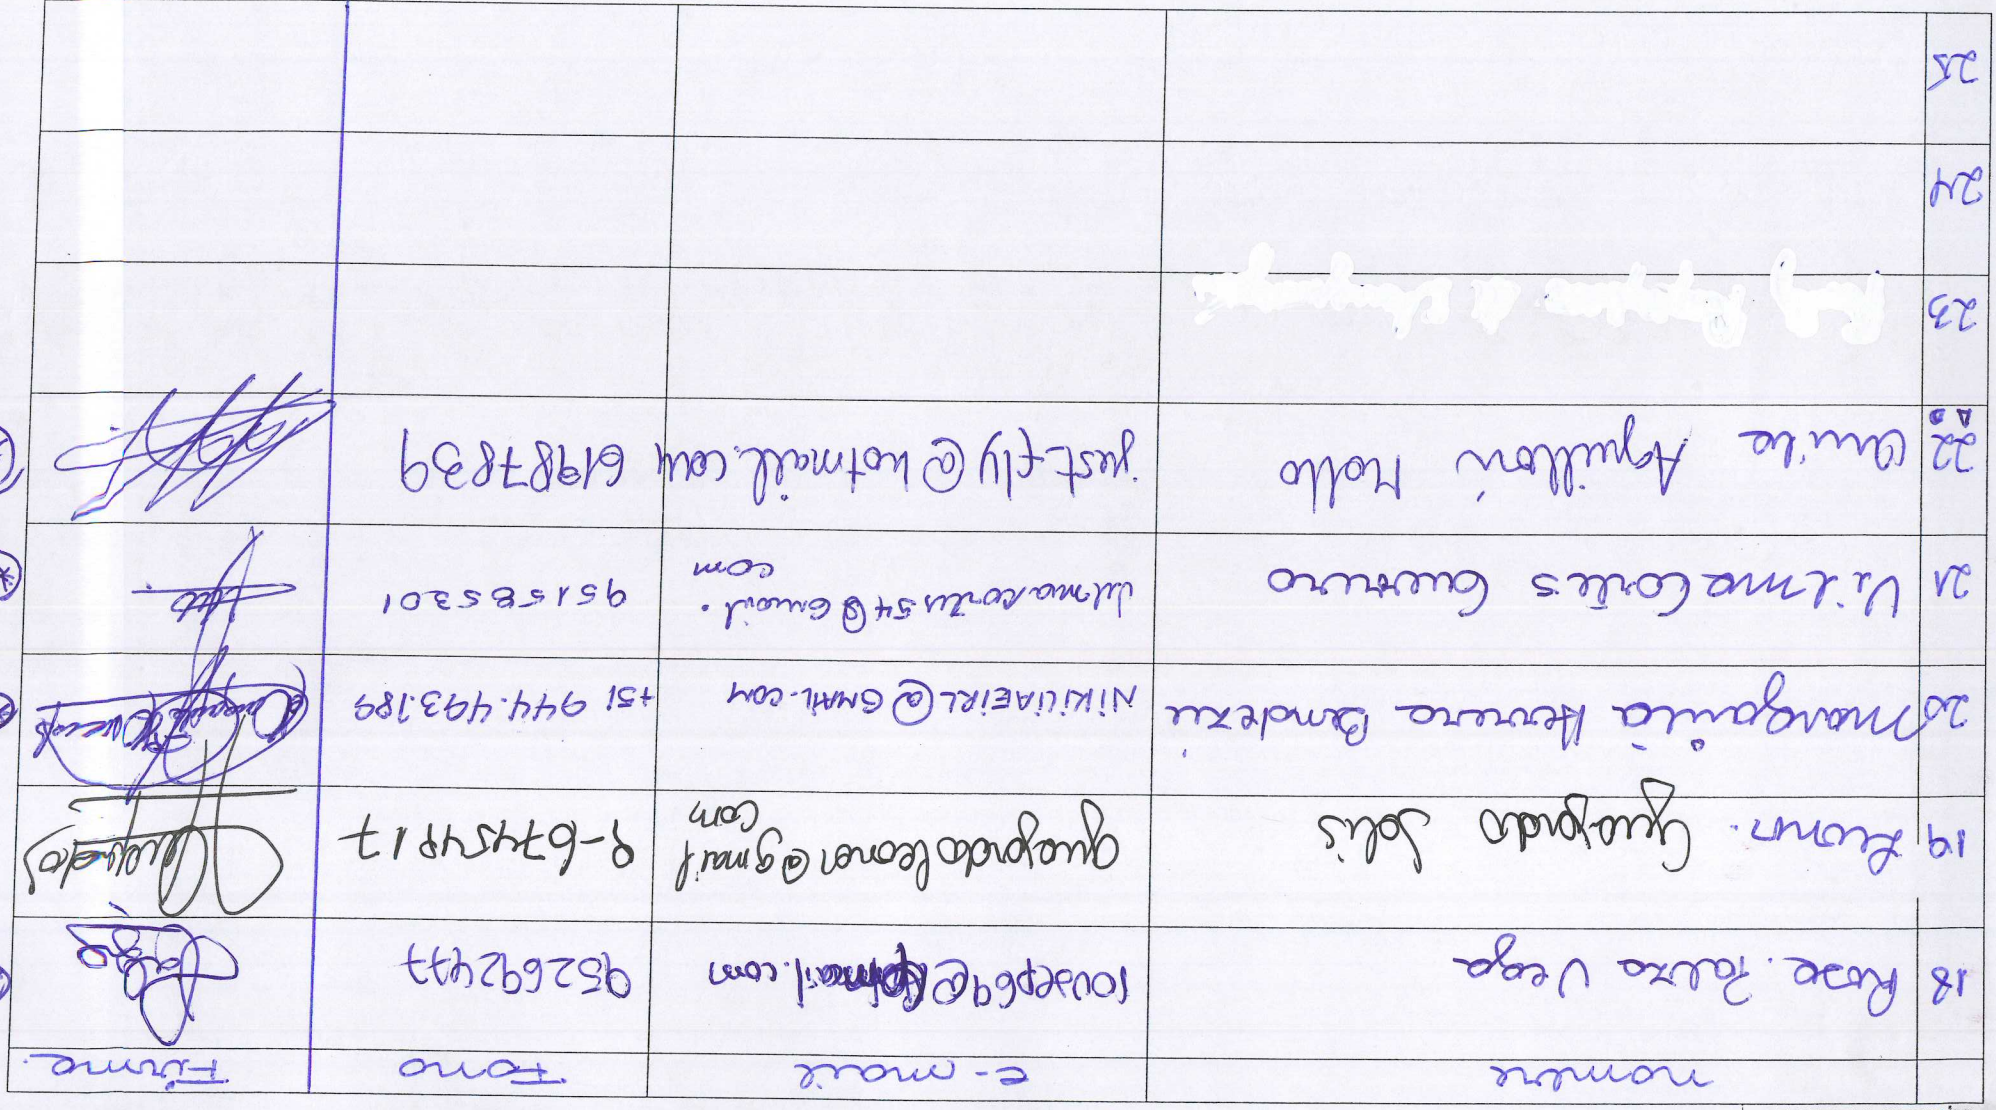 nombre e-mail Fono Firma.
18 Rosa. Palza Vega rovsep69@hotmail.com 952692477
19 Leonor. Guajardo Solis guajardoleonor@gmail
com 9-67454817
20 Margarita Herrera Bendezú NIKILIAEIRL@GMAIL.COM +51 944.493.789
21 Vilma Cortés Guerrero vilmacortes54@Gmail.
com 951585301
22 Anita Aguillón Mollo jest_fly@hotmail.com 61987839
23
24
25